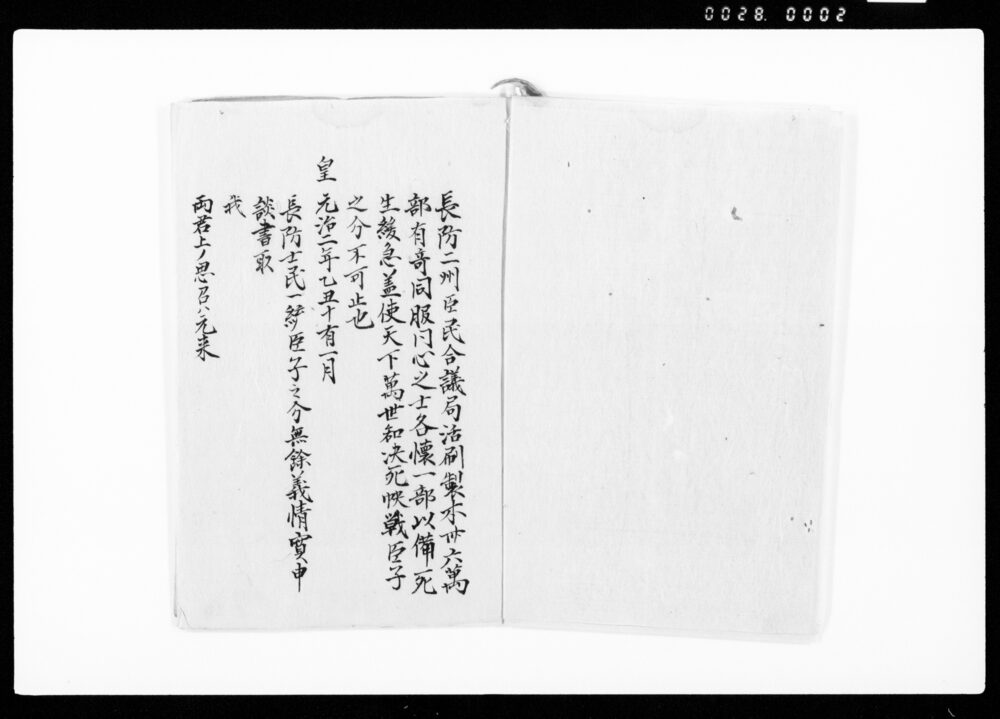 0028. 0002
長防二州臣民合議局活刷製本卅六萬
部有竒同服同心之士各懐一部以備死
生緩急盖使天下萬世知决死快戦臣子
之分不可止也
皇元治二年乙丑十有一月
長防士民一統臣子之分無餘義情實申
談書取
我
両君上ノ思召ハ元来